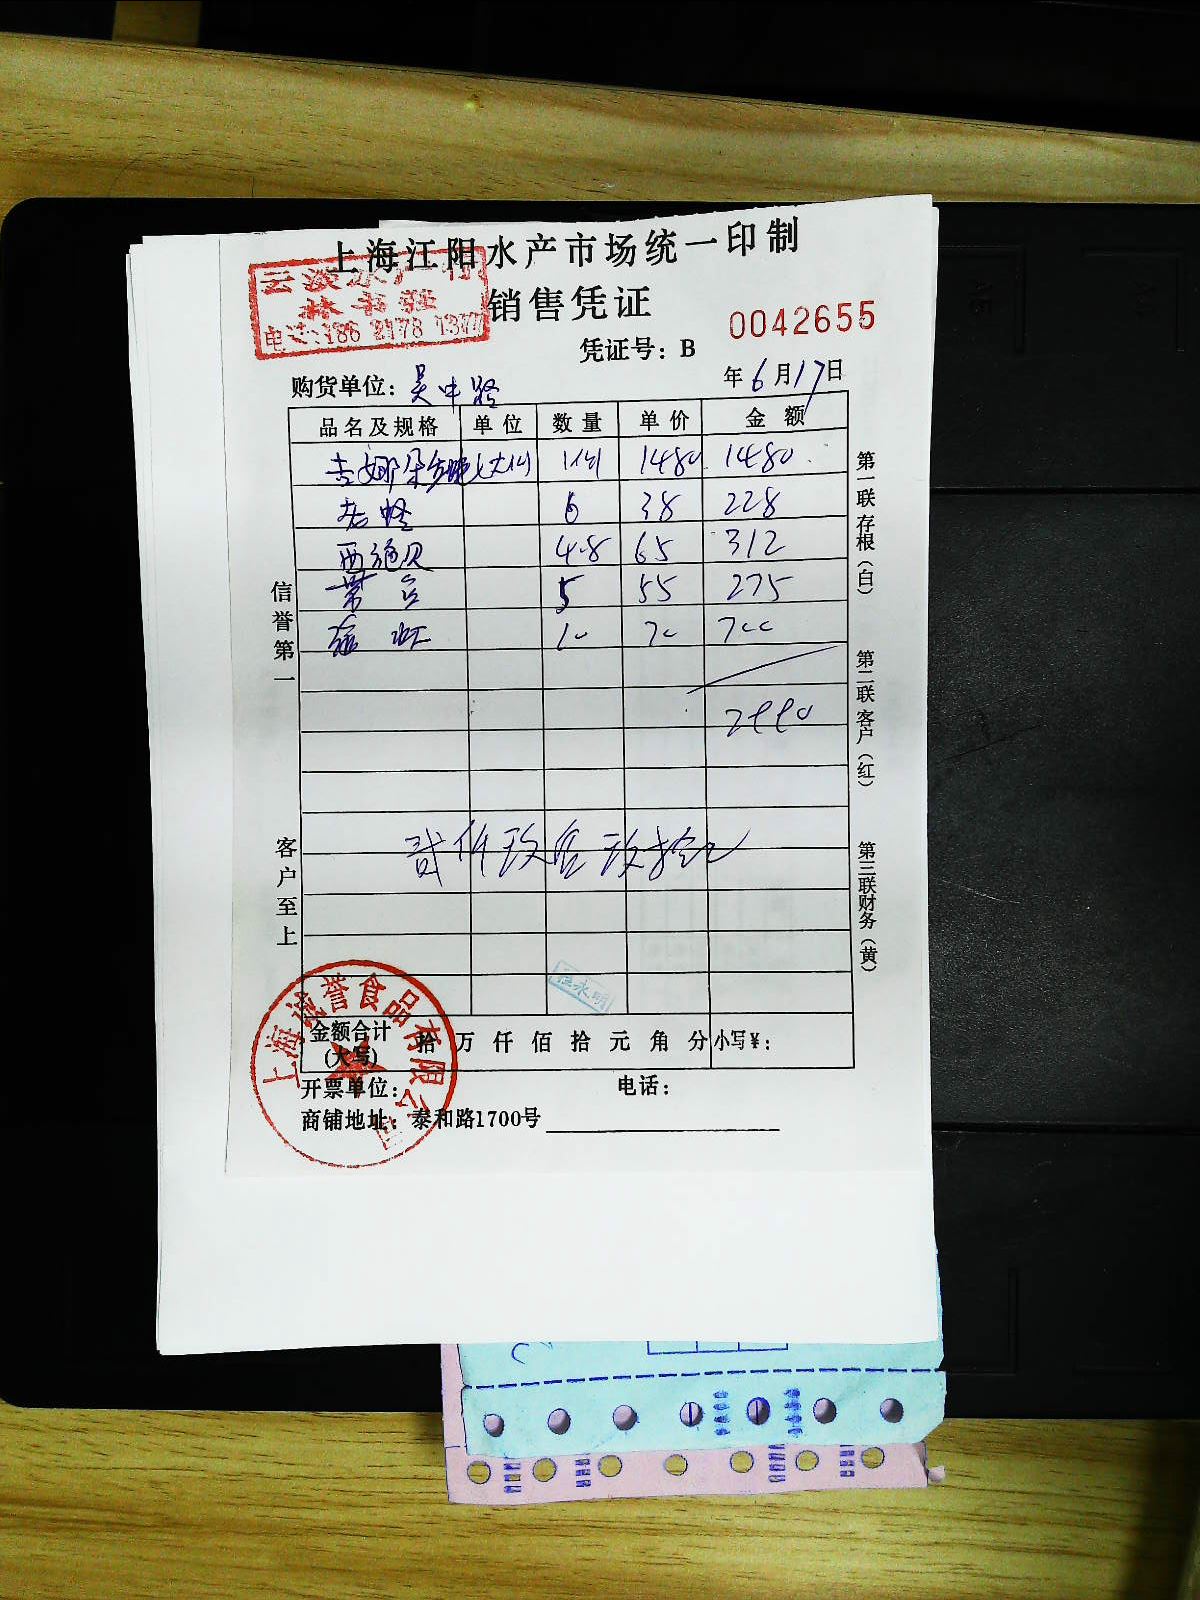 上海江阳水产市场统一印制
云淡水产行
林书强
电话:186 2178 1377
销售凭证
0042655
凭证号:B
购货单位:吴中路
年6月17日
品名及规格 单位 数量 单价 金额
1480 1480
6 38 228
西施贝 4.8 65 312
5 55 275
10 70 700
2990
贰仟玖佰玖拾元
信誉第一
客户至上
第一联存根(白)
第二联客户(红)
第三联财务(黄)
金额合计(大写) 拾 万 仟 佰 拾 元 角 分 小写¥:
开票单位: 电话:
商铺地址:泰和路1700号
永明